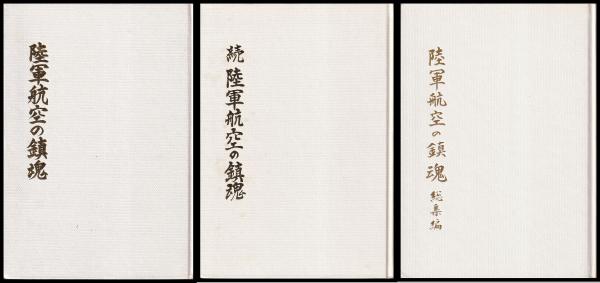 陸軍航空の鎮魂
続 陸軍航空の鎮魂
陸軍航空の鎮魂 総集編